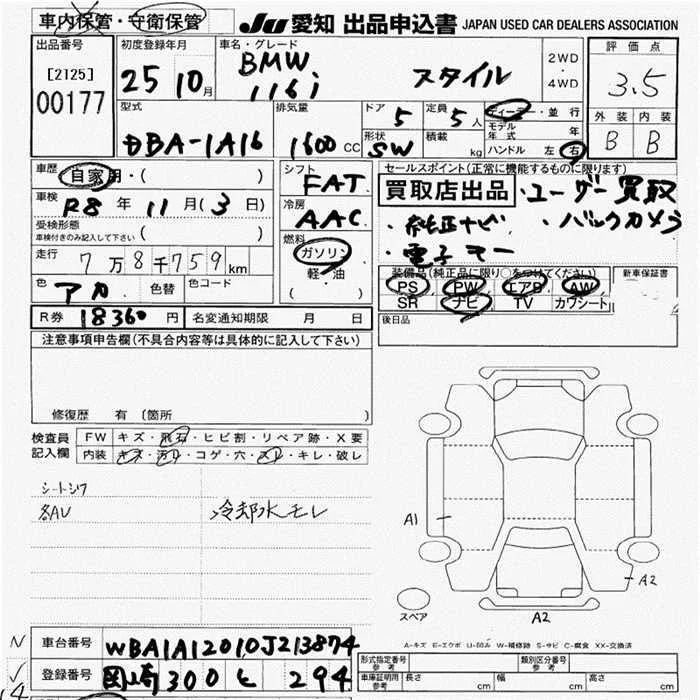 車内保管・守衛保管
JU 愛知 出品申込書 JAPAN USED CAR DEALERS ASSOCIATION
出品番号
[2125]
00177
初度登録年月
25 10月
車名・グレード
BMW
116i スタイル
2WD
・
4WD
評価点
3.5
外装 内装
B B
型式
DBA-1A16
排気量
1600 CC
ドア 5
定員 5人
形状 SW
積載 kg
ディーラー・並行
モデル年式 年
ハンドル 左・右
車歴 自家用・( )
車検 R8年11月(3日)
受検形態
車検付きのみ記入して下さい ( )
走行 7万8千759km
色 アカ 色替 色コード
シフト FAT
冷房 AAC
燃料
ガソリン
軽・油
( )
セールスポイント(正常に機能するものに限ります)
買取店出品 ・ユーザー買取
・純正ナビ ・バックカメラ
・電子キー
装備品(純正品に限り○をつけてください)
PS PW エアB AW
SR ナビ TV カワシート
新車保証書
後日品
R券 18360円 名変通知期限 月 日
注意事項申告欄(不具合内容等は具体的に記入して下さい)
修復歴 有 〔箇所 〕
検査員記入欄
FW キズ・飛石・ヒビ割・リペア跡・X要
内装 キズ・汚れ・コゲ・穴・スレ・キレ・破レ
シートシワ
各AU 冷却水モレ
A1
A2
スペア
A2
A-キズ E-エクボ U-凹み W-補修跡 S-サビ C-腐食 XX-交換済
車台番号 WBA1A12010J213874
登録番号 岡崎300 と 294
形式指定番号 参考
類別区分番号 参考
車庫証明用 参考 長さ cm 幅 cm 高さ cm